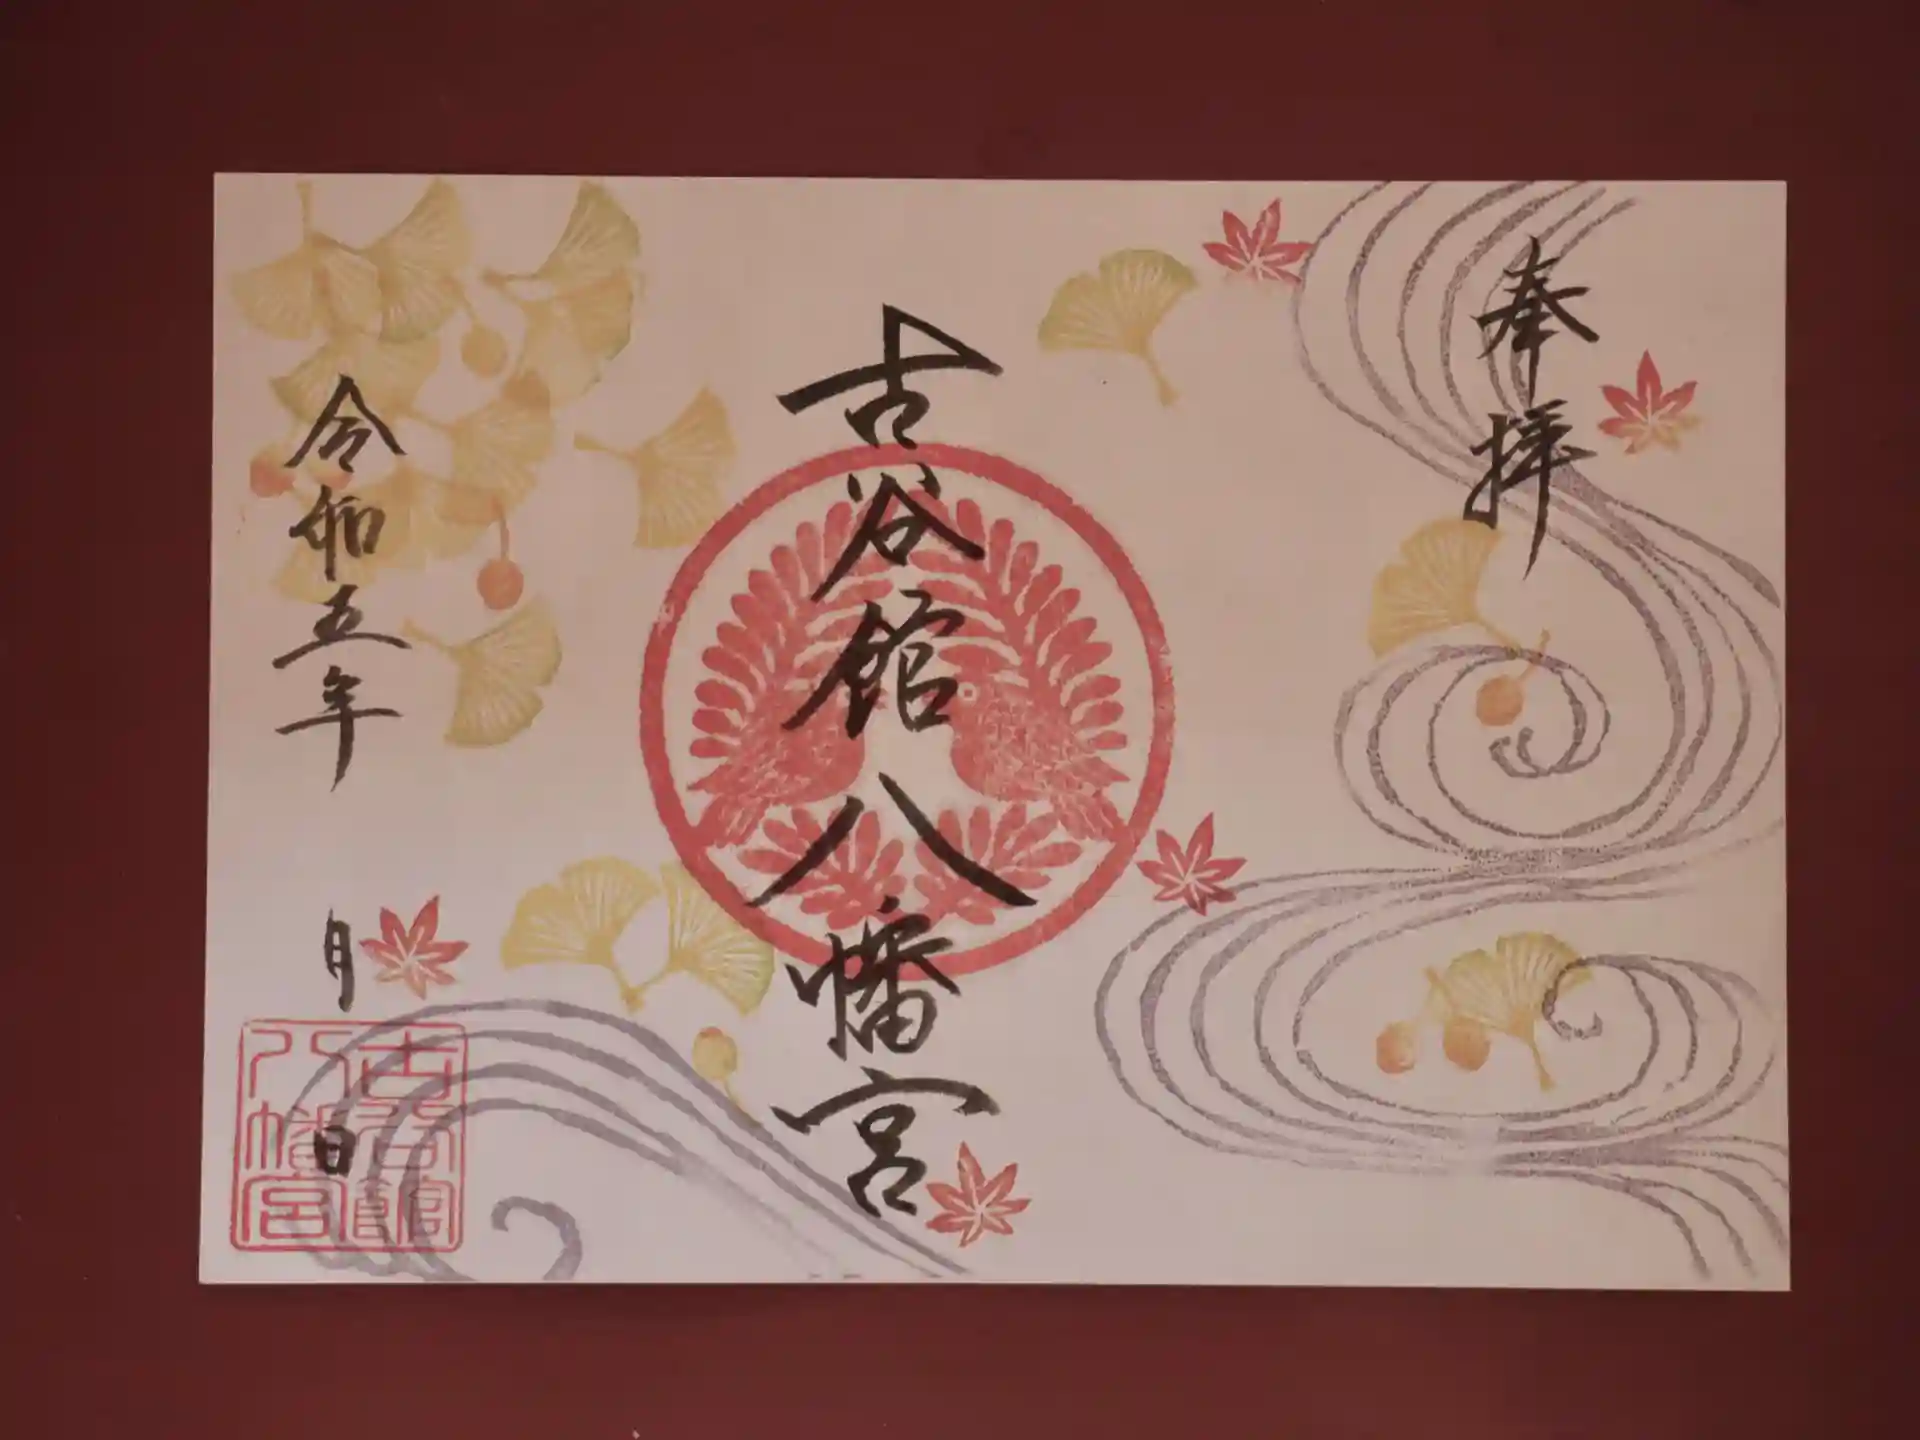 奉拝
古谷館八幡宮
令和五年 月 日
古谷館
八幡宮